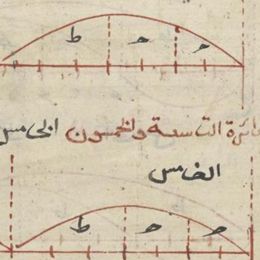 ط ح ح
ائرة التاسعة والخمسون الخامس
الخامس
ط ح ح